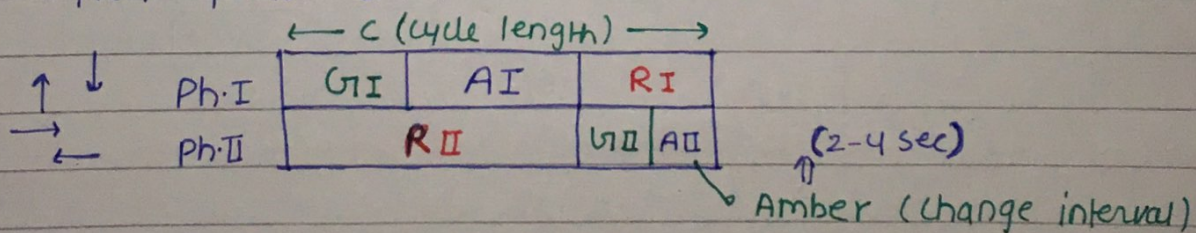 ← C (cycle length) →
↑ ↓ Ph.I GI AI RI
→ ← Ph.II RII GII AII (2-4 sec)
Amber (Change interval)